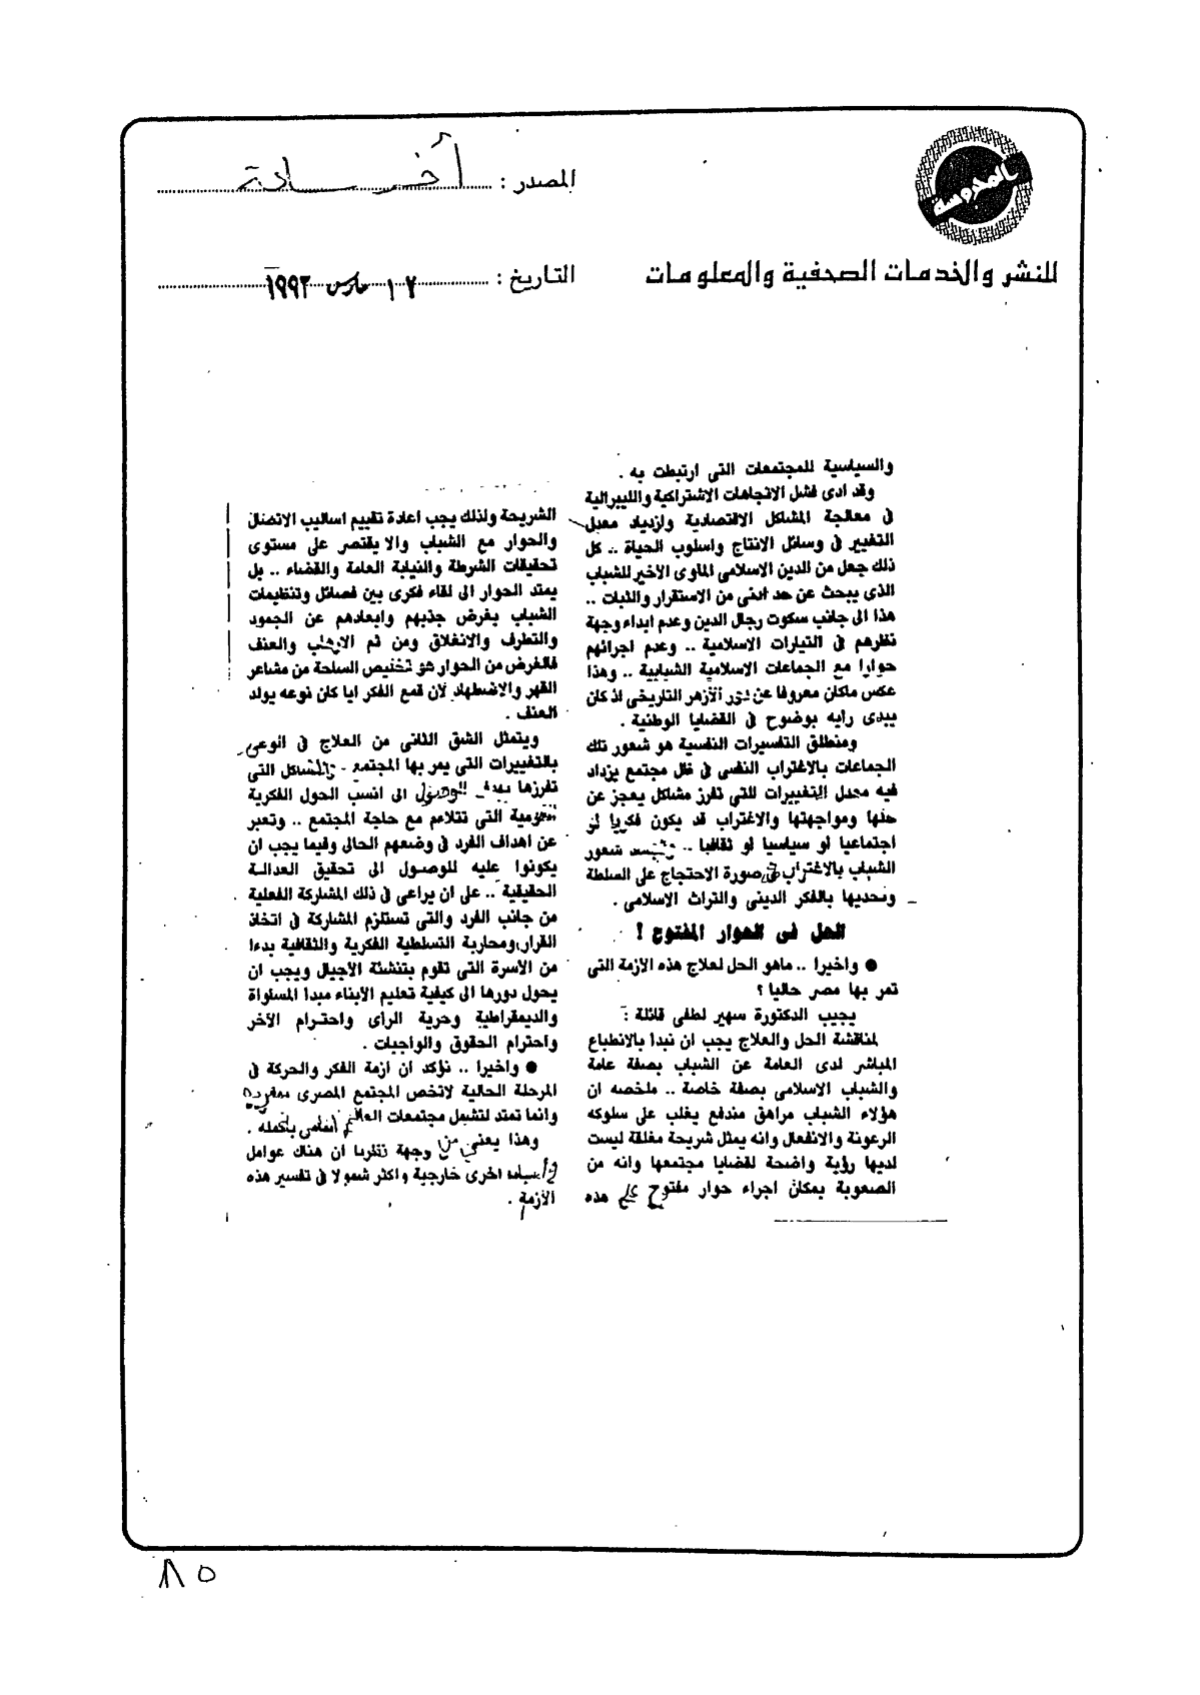 المصدر : أخر ساعة
بالمحروسة
للنشر والخدمات الصحفية والمعلومات
التاريخ : مارس ١٩٩٣
والسياسية للمجتمعات التى ارتبطت به .
وقد ادى فشل الاتجاهات الاشتراكية والليبرالية
فى معالجة المشاكل الاقتصادية وازدياد معدل
التغيير فى وسائل الانتاج واسلوب الحياة .. كل
ذلك جعل من الدين الاسلامى الماوى الأخير للشباب
الذى يبحث عن حد ادنى من الاستقرار والثبات ..
هذا الى جانب سكوت رجال الدين وعدم ابداء وجهة
نظرهم فى التيارات الاسلامية .. وعدم اجرائهم
حوارا مع الجماعات الاسلامية الشبابية .. وهذا
عكس ماكان معروفا عن دور الأزهر التاريخى اذ كان
يبدى رايه بوضوح فى القضايا الوطنية .
ومنطلق التفسيرات النفسية هو شعور تلك
الجماعات بالاغتراب النفسى فى ظل مجتمع يزداد
فيه معدل التغييرات التى تفرز مشاكل يعجز عن
حلها ومواجهتها والاغتراب قد يكون فكريا او
اجتماعيا او سياسيا او ثقافيا .. شعور
الشباب بالاغتراب فى صورة الاحتجاج على السلطة
وتحديها بالفكر الدينى والتراث الاسلامى .
الحل فى الحوار المفتوح !
● واخيرا .. ماهو الحل لعلاج هذه الازمة التى
تمر بها مصر حاليا ؟
يجيب الدكتورة سهير لطفى قائلة :
لمناقشة الحل والعلاج يجب ان نبدأ بالانطباع
المباشر لدى العامة عن الشباب بصفة عامة
والشباب الاسلامى بصفة خاصة .. ملخصه ان
هؤلاء الشباب مراهق مندفع يغلب على سلوكه
الرعونة والانفعال وانه يمثل شريحة مغلقة ليست
لديها رؤية واضحة لقضايا مجتمعها وانه من
الصعوبة بمكان اجراء حوار مفتوح مع هذه
الشريحة ولذلك يجب اعادة تقييم اساليب الاتصال
والحوار مع الشباب والا يقتصر على مستوى
تحقيقات الشرطة والنيابة العامة والقضاء .. بل
يمتد الحوار الى لقاء فكرى بين فصائل وتنظيمات
الشباب بغرض جذبهم وابعادهم عن الجمود
والتطرف والانغلاق ومن ثم الارهاب والعنف
فالغرض من الحوار هو تخليص الساحة من مشاعر
القهر والاضطهاد لأن قمع الفكر ايا كان نوعه يولد
العنف .
ويتمثل الشق الثانى من العلاج فى الوعى
بالتغييرات التى يمر بها المجتمع - والمشاكل التى
تفرزها بهدف الوصول الى انسب الحول الفكرية
القومية التى تتلاءم مع حاجة المجتمع .. وتعبر
عن اهداف الفرد فى وضعهم الحالى وفيما يجب ان
يكونوا عليه للوصول الى تحقيق العدالة
الحقيقية .. على ان يراعى فى ذلك المشاركة الفعلية
من جانب الفرد والتى تستلزم المشاركة فى اتخاذ
القرار ومحاربة التسلطية الفكرية والثقافية بدءا
من الأسرة التى تقوم بتنشئة الأجيال ويجب ان
يحول دورها الى كيفية تعليم الابناء مبدا المساواة
والديمقراطية وحرية الرأى واحترام الآخر
واحترام الحقوق والواجبات .
● واخيرا .. نؤكد ان ازمة الفكر والحركة فى
المرحلة الحالية لاتخص المجتمع المصرى بمفرده
وانما تمتد لتشمل مجتمعات العالم النامى باكمله .
وهذا يعنى من وجهة نظرنا ان هناك عوامل
واسباب اخرى خارجية واكثر شمولا فى تفسير هذه
الأزمة .